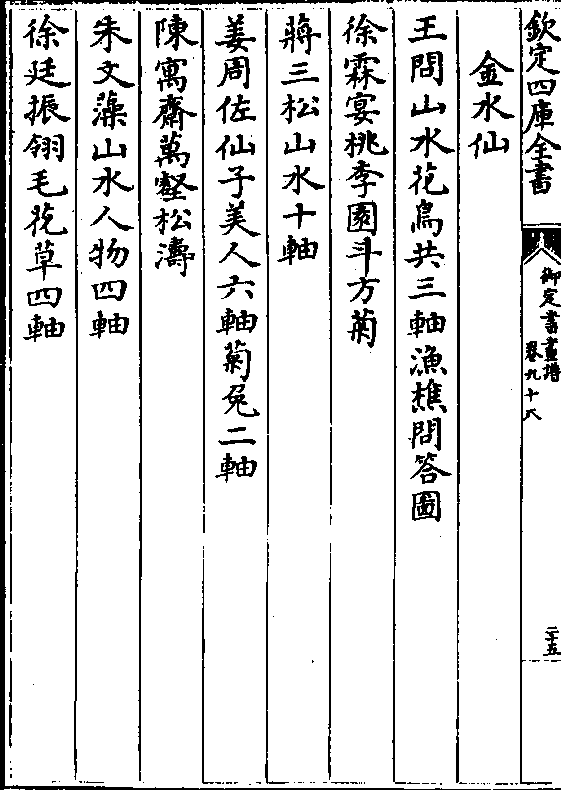 欽定四庫全書
御定書畫譜
卷九十八
二十五
金水仙
王問山水花鳥共三軸漁樵問答圖
徐霖宴桃李園斗方菊
蔣三松山水十軸
姜周佐仙子美人六軸菊兔二軸
陳寓齋萬壑松濤
朱文藻山水人物四軸
徐廷振翎毛花草四軸